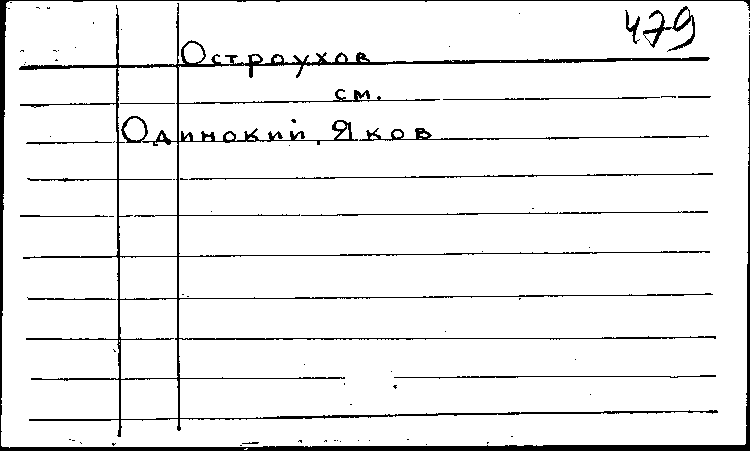 479
Остроухов
см.
Одинокий, Яков